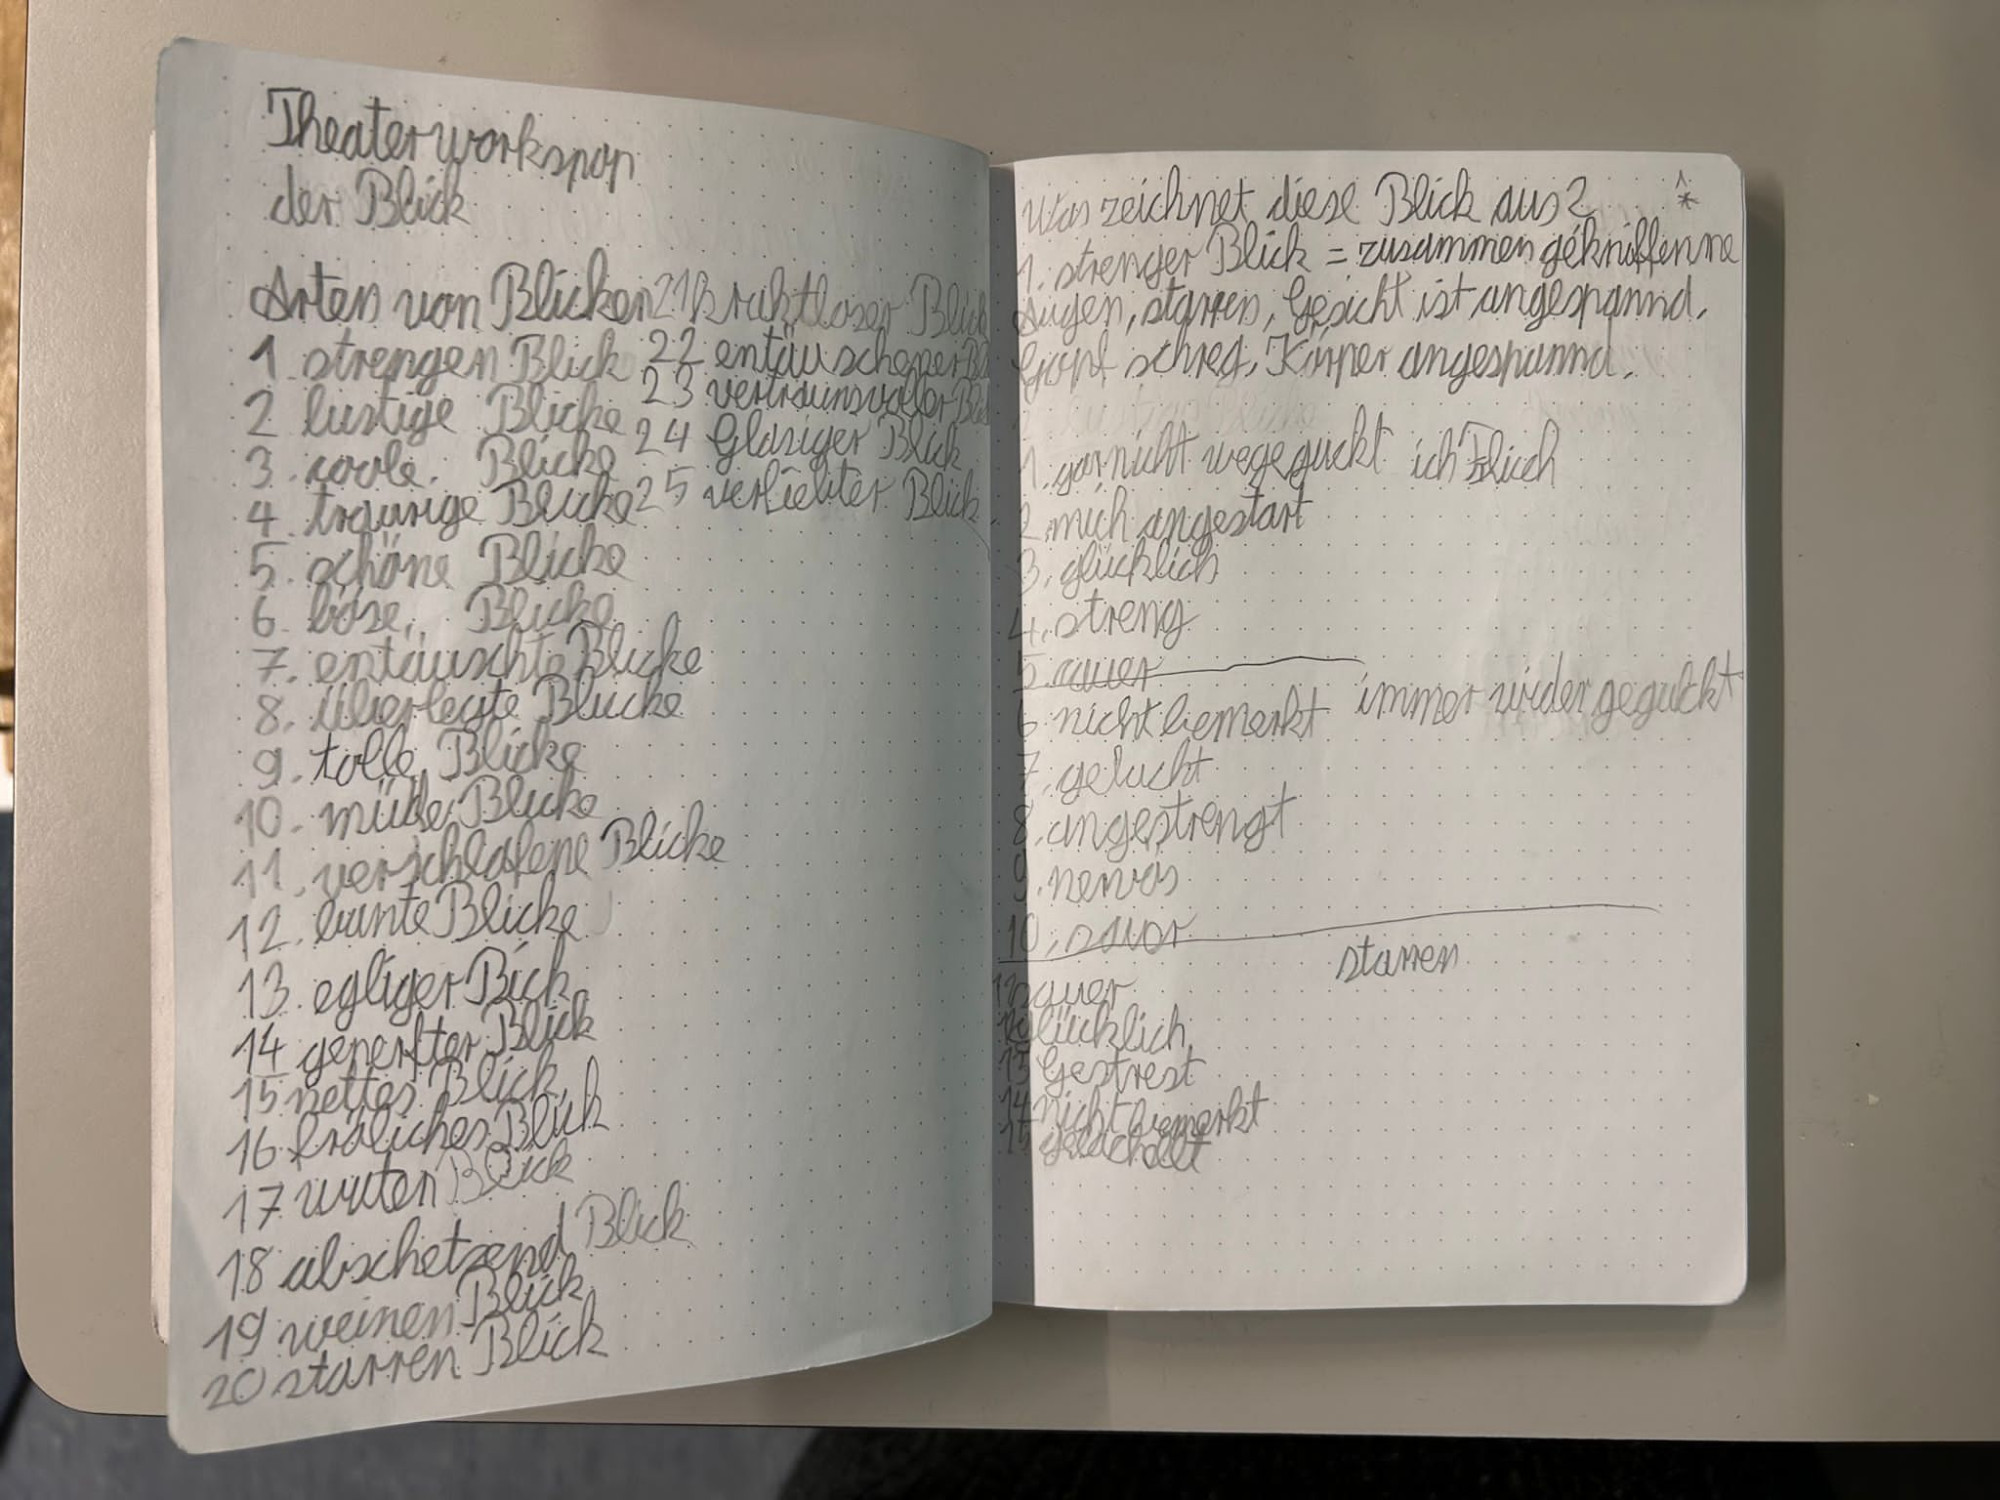 Theaterworkspop
der Blick
Arten von Blicken
1 strengen Blick
2 lustige Blicke
3. coole. Blicke
4 traurige Blicke
5. schöne Blicke
6. böse. Blicke
7. entäuschte Blicke
8. überlegte Blicke
9. tolle Blicke
10. müde Blicke
11. verschlafene Blicke
12. bunte Blicke
13. egliger Bick
14 generfter Blick
15 nettes Blick
16 fröliches Blick
17 wuten Blick
18 abschetzend Blick
19 weinen Blick
20 starren Blick
21 kraktloser Blick
22 entäuschener
23 vertraunsvoller
24 Glasiger Blick
25 verliebter Blick
Was zeichnet diese Blick aus?
1. strenger Blick = zusammen gekniffenne
Augen, starren, Gesicht ist angespannd,
schreg, Körper angespannd.
1. gar nicht wegeguckt ich
2. mich angestart
3. glücklich
4. streng
5. auer
6. nicht bemerkt immer wider geguckt
7. gelacht
8. angestrengt
9. nervös
10. sauer
starren
12 sauer
Glücklich
13 Gestrest
14 nicht bemerkt
15